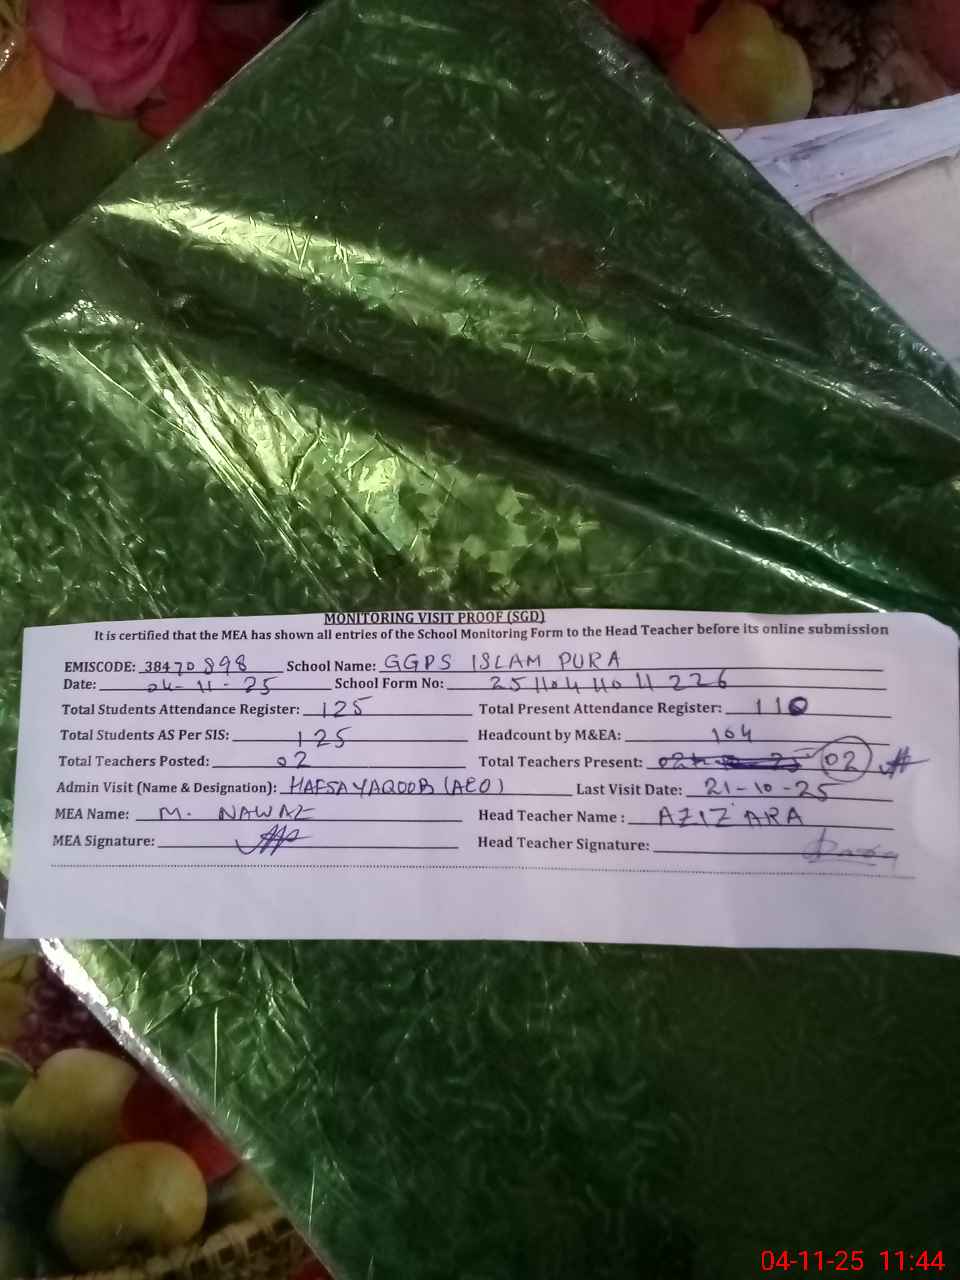 MONITORING VISIT PROOF (SGD)
It is certified that the MEA has shown all entries of the School Monitoring Form to the Head Teacher before its online submission
EMISCODE: 38470898 School Name: GGPS ISLAM PURA
Date: 04-11-25 School Form No: 25110411011226
Total Students Attendance Register: 125 Total Present Attendance Register: 110
Total Students AS Per SIS: 125 Headcount by M&EA: 104
Total Teachers Posted: 02 Total Teachers Present: 02
Admin Visit (Name & Designation): HAFSA YAQOOB (AEO) Last Visit Date: 21-10-25
MEA Name: M. NAWAZ Head Teacher Name : AZIZ ARA
MEA Signature: Head Teacher Signature:
04-11-25 11:44